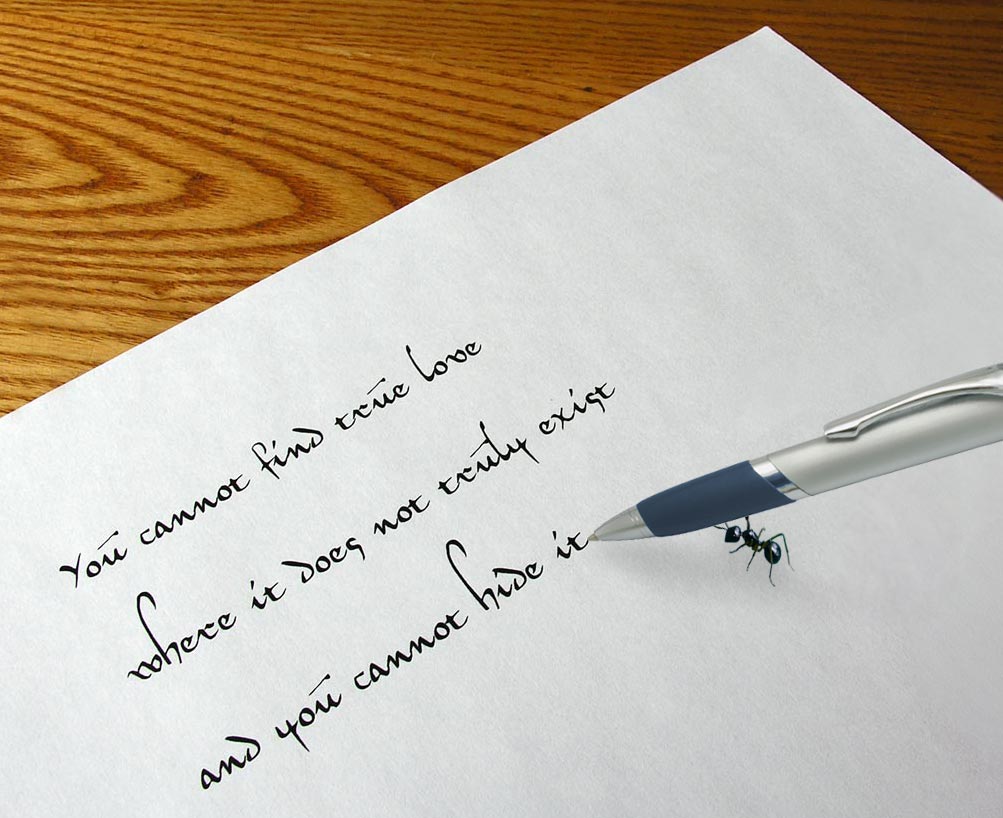 You cannot find true love
where it does not truly exist
and you cannot hide it